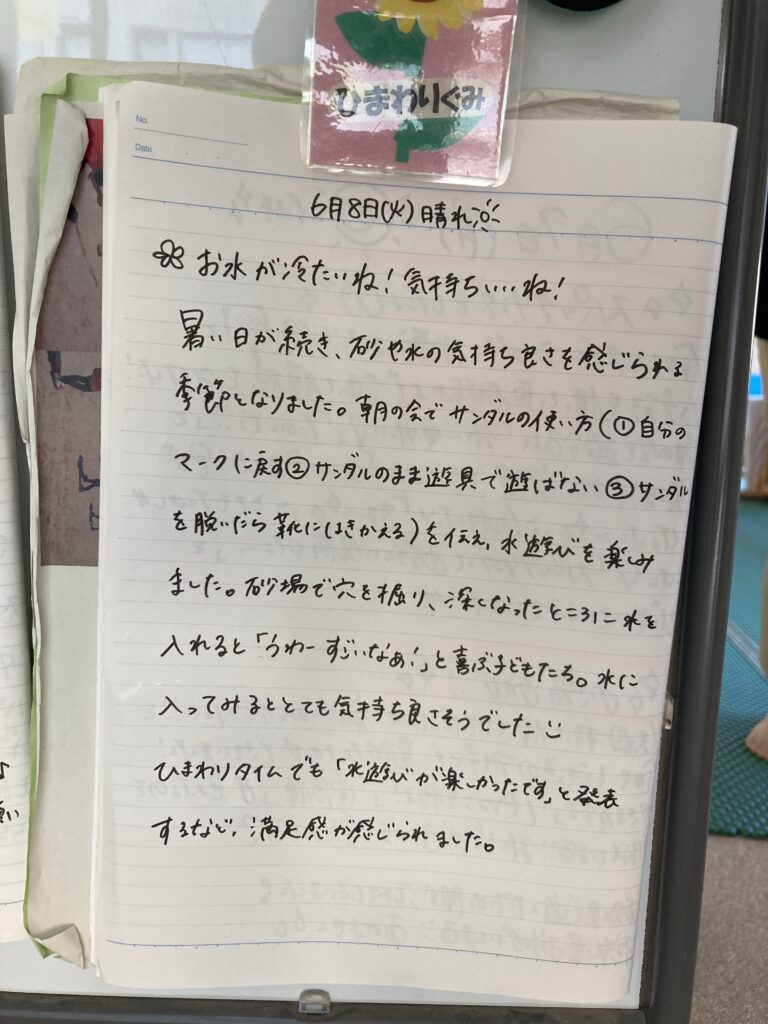 ひまわりぐみ
No.
Date
6月8日(火) 晴れ
お水が冷たいね!気持ちいいね!
暑い日が続き、砂や水の気持ち良さを感じられる
季節となりました。朝の会でサンダルの使い方(①自分の
マークに戻す②サンダルのまま遊具で遊ばない③サンダル
を脱いだら靴にはきかえる)を伝え、水遊びを楽しみ
ました。砂場で穴を掘り、深くなったところに水を
入れると「うわーすごいなぁ!」と喜ぶ子どもたち。水に
入ってみるととても気持ち良さそうでした
ひまわりタイムでも「水遊びが楽しかったです」と発表
するなど、満足感が感じられました。